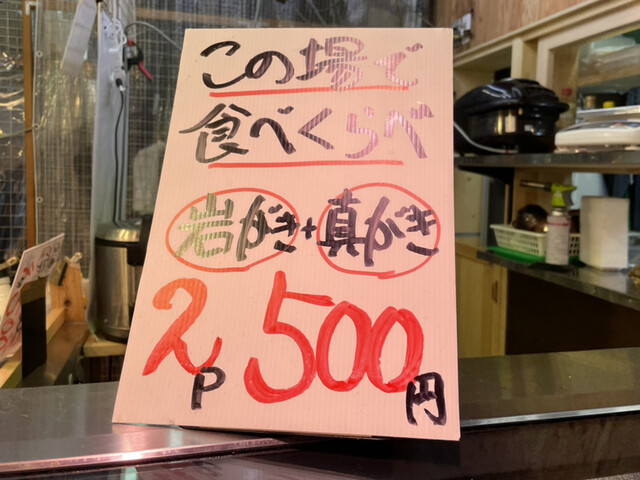 この場で
食べくらべ
岩がき+真がき
2P 500円